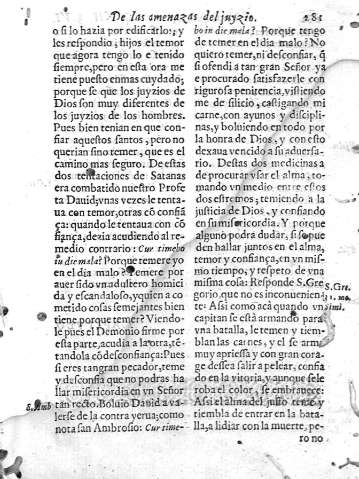 De las amenazas del juyzio. 281
o si lo hazia por edificarlo: y
les respondio; hijos el temor
que agora tengo lo e tenido
siempre, pero en esta ora el
tiene puesto en mas cuydado;
porque se que los juyzios de
Dios son muy diferentes de
los juyzios de los hombres.
Pues bien tenian en que confiar
aquestos santos, pero no
querian sino temer, que es el
camino mas seguro. De estas
dos tentaciones de Satanas
era combatido nuestro Profeta
Dauid; vnas vezes le tentaua
con temor, otras cõ confiãça:
quando le tentaua con cõfiãnça,
dezia acudiendo al remedio
contrario: Cur timebo
in die mala? Porque temere yo
en el dia malo? Temere por
auer sido vn adultero homicida
y escandaloso, y quien a cometido
cosas semejantes bien
tiene porque temer? Viendole
pues el Demonio firme por
esta parte, acudia a la otra, tẽtandola
cõ desconfiança: Pues
si eres tan gran pecador, teme
y desconfia que no podras hallar
misericordia en vn Señor
tan recto. Boluio Dauid a valerse
de la contra yerua; como
nota san Ambrosio: Cur time-
S. Amb
bo in die mala? Porque tengo
de temer en el dia malo? No
quiero temer, ni desconfiar, q̃
si ofendi a tan gran Señor ya
e procurado satisfazerle con
rigurosa penitencia, vistiendome
de silicio, castigando mi
carne, con ayunos y disciplinas,
y boluiendo en todo por
la honra de Dios, y con esto
dexaua vencido a su aduersario.
Destas dos medicinas a
de procurar vsar el alma, tomando
vn medio entre estos
dos estremos; temiendo a la
justicia de Dios, y confiando
en su misericordia. Y porque
alguno podra dudar, si se pueden
hallar juntos en el alma,
temor y confiança, en vn mismo
tiempo, y respeto de vna
misma cosa: Responde S. Gregorio,
que no es inconueniente:
Assi como acà quando vn
capitan se està armando para
vna batalla, le temen y tiemblan
las carnes, y el se arma
muy apriessa y con gran corage
dessea salir a pelear, confiado
en la vitoria, y aunque se le
roba el color, se embrauece:
Assi el alma del justo teme y
tiembla de entrar en la batalla,
a lidiar con la muerte, pe-
ro no
S. Gre.